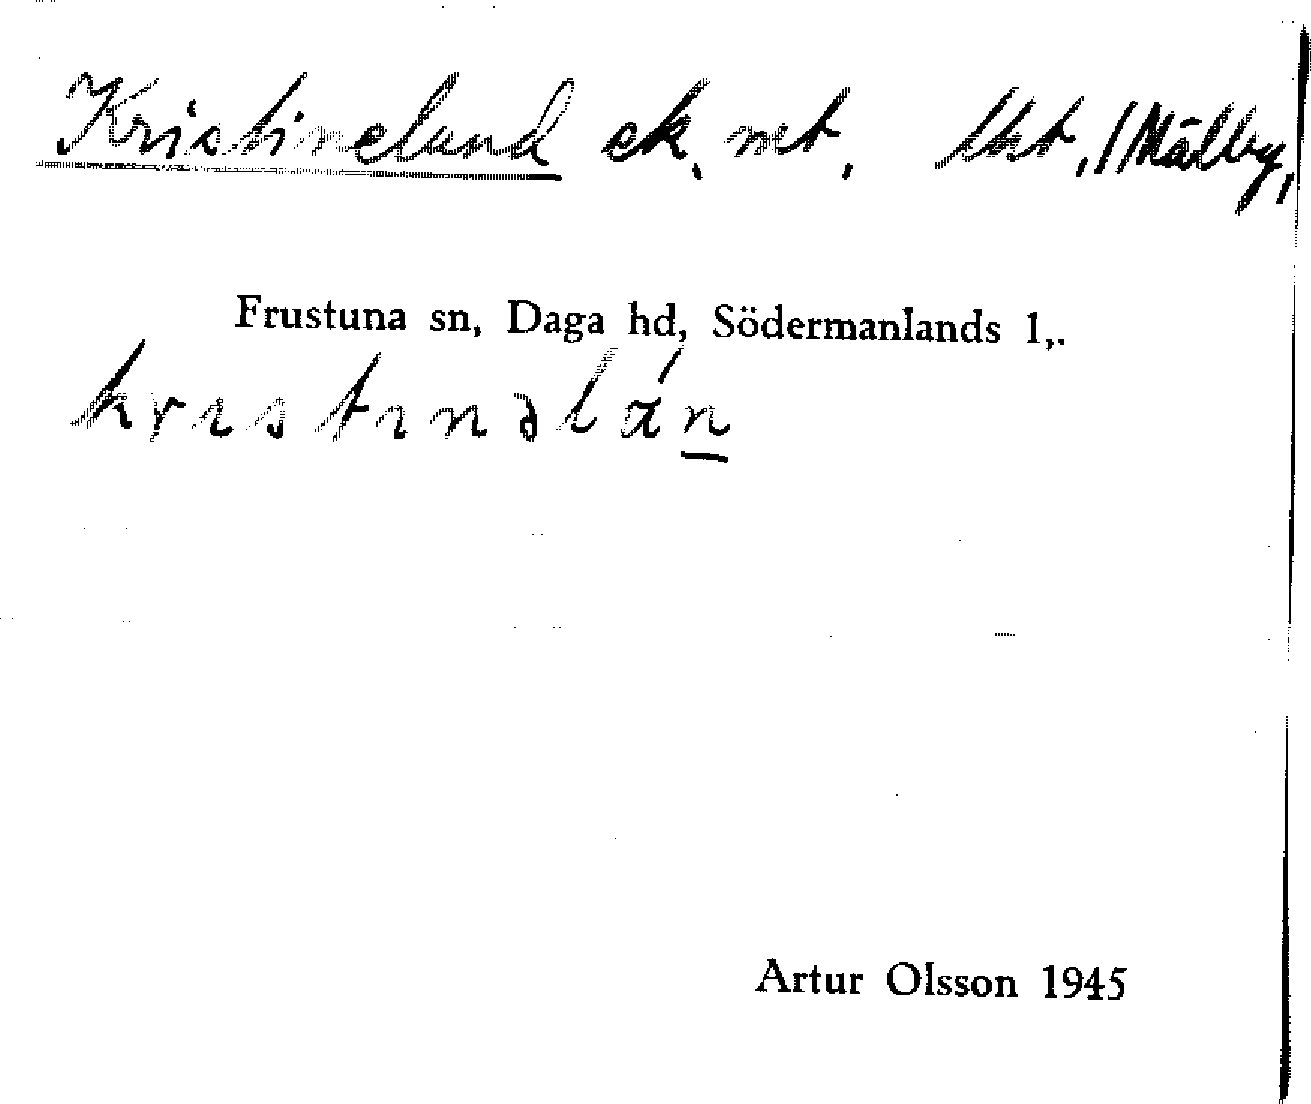 Kristinelund ek. nrt. lht., / Mälby,
Frustuna sn, Daga hd, Södermanlands l,.
krɪstɪnəlán
Artur Olsson 1945